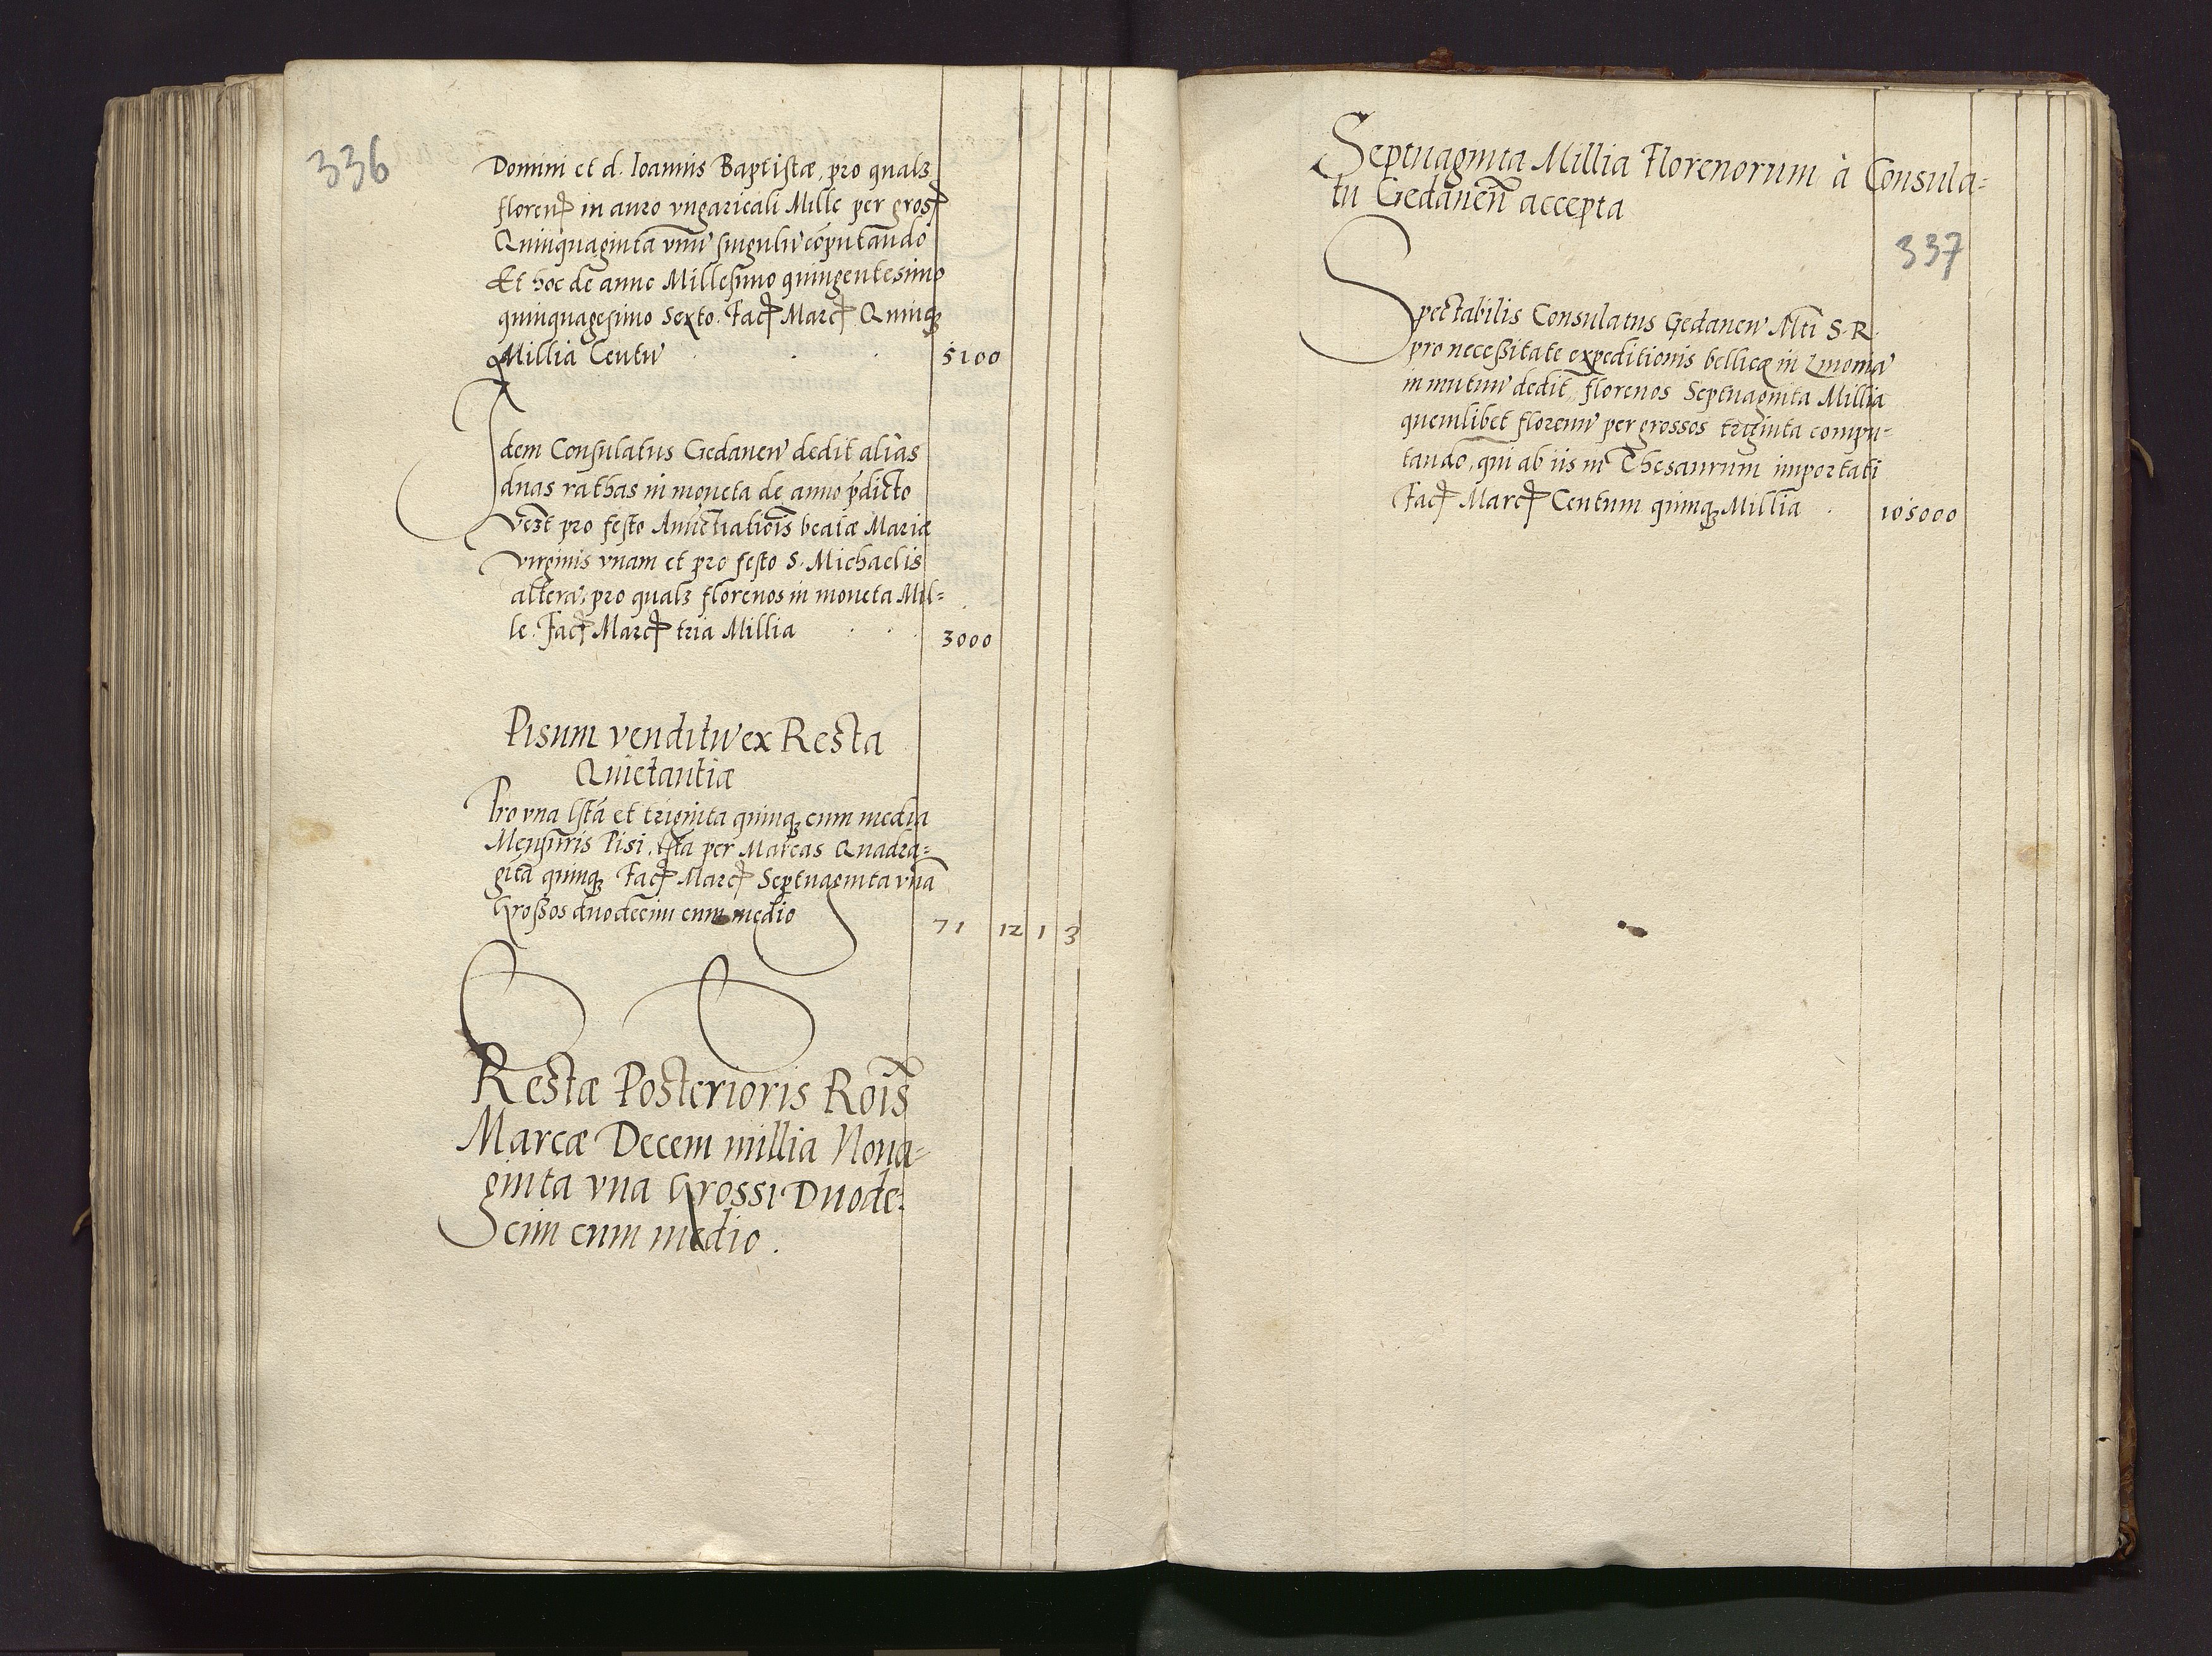 336
Domini et d. Ioannis Baptistæ, pro qualꝫ
floren in auro vngaricali Mille per gross
Quinquaginta vnū singulū cōputando
Et hoc de anno Millesimo quingentesimo
quinquagesimo Sexto. Fac Marc Quinqꝫ
Millia Centū 5100
Idem Consulatus Gedanen dedit alias
duas rathas in moneta de anno p̄dicto
vezt pro festo Anūctiatiōis beatæ Mariæ
virginis vnam et pro festo S. Michaelis
alterā, pro qualꝫ florenos in moneta Mil=
le. Fac Marc tria Millia 3000
Pisum venditū ex Resta
Quietantiæ
Pro vna lsta et triginta quinqꝫ cum media
Mensuris Pisi, lsta per Marcas Quadra=
gitā quinqꝫ Fac Marc Septuaginta vnā
Grossos duodecim cum medio 71 12 1 3
Restæ Posterioris Rōis
Marcæ Decem millia Nona=
ginta vna Grossi Duode=
cim cum medio.
Septuaginta Millia Florenorum à Consula=
tu Gedanēn accepta
337
Spectabilis Consulatus Gedanen Mti S. R.
pro necessitate expeditionis bellicæ in Liuoniā
in mutuū dedit, florenos Septuaginta Millia
quemlibet florenū per grossos triginta compu=
tando, qui ab iis in Thesaurum importati
Fac Marc Centum quinqꝫ Millia 105000